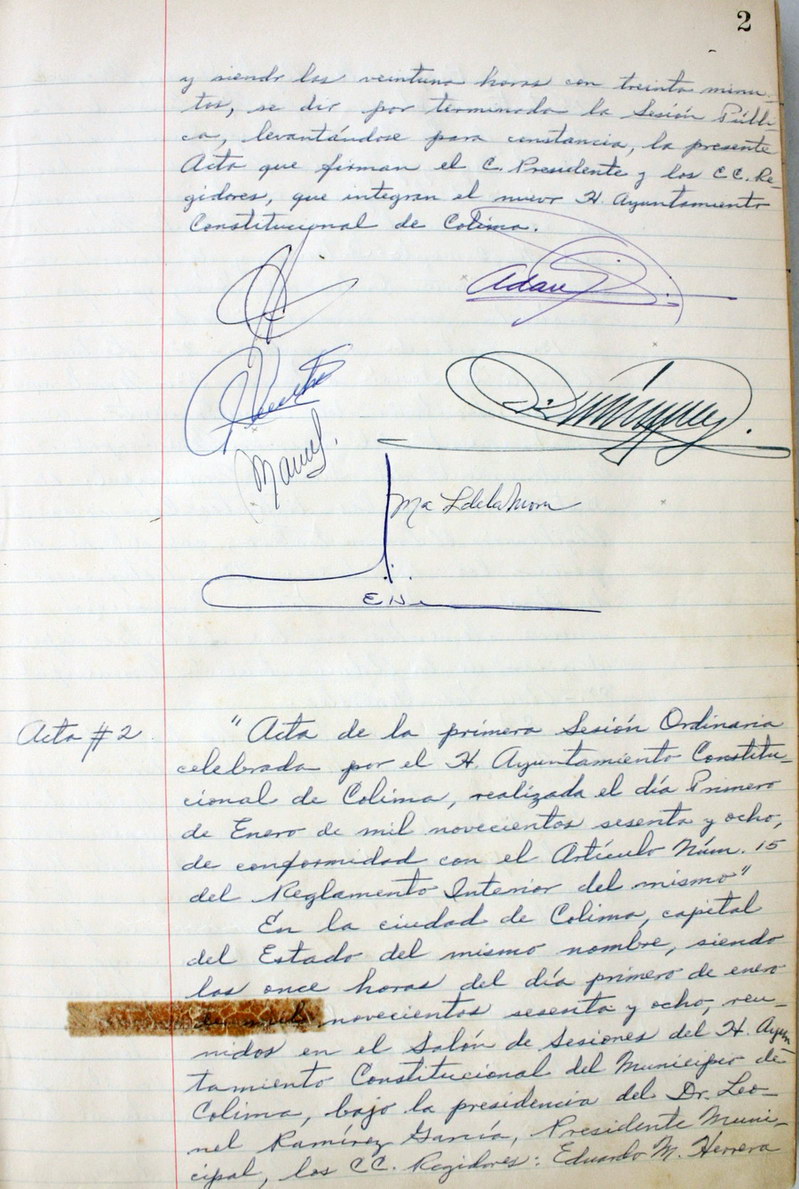 2
y siendo las veintiuna horas con treinta minu-
tos, se dio por terminada la Sesión Públi-
ca, levantándose para constancia, la presente
Acta que firman el C. Presidente y los C.C. Re-
gidores, que integran el nuevo H. Ayuntamiento
Constitucional de Colima.
Adan
Manuel.
Ma L de la Mora
Acta #2.
"Acta de la primera Sesión Ordinaria
celebrada por el H. Ayuntamiento Constitu-
cional de Colima, realizada el día Primero
de Enero de mil novecientos sesenta y ocho,
de conformidad con el Artículo Núm. 15
del Reglamento Interior del mismo"
En la ciudad de Colima, capital
del Estado del mismo nombre, siendo
las once horas del día primero de enero
de mil novecientos sesenta y ocho, reu-
nidos en el Salón de Sesiones del H. Ayun
tamiento Constitucional del Municipio de
Colima, bajo la presidencia del Dr. Leo-
nel Ramírez García, Presidente Muni-
cipal, los CC. Regidores: Eduardo M. Herrera